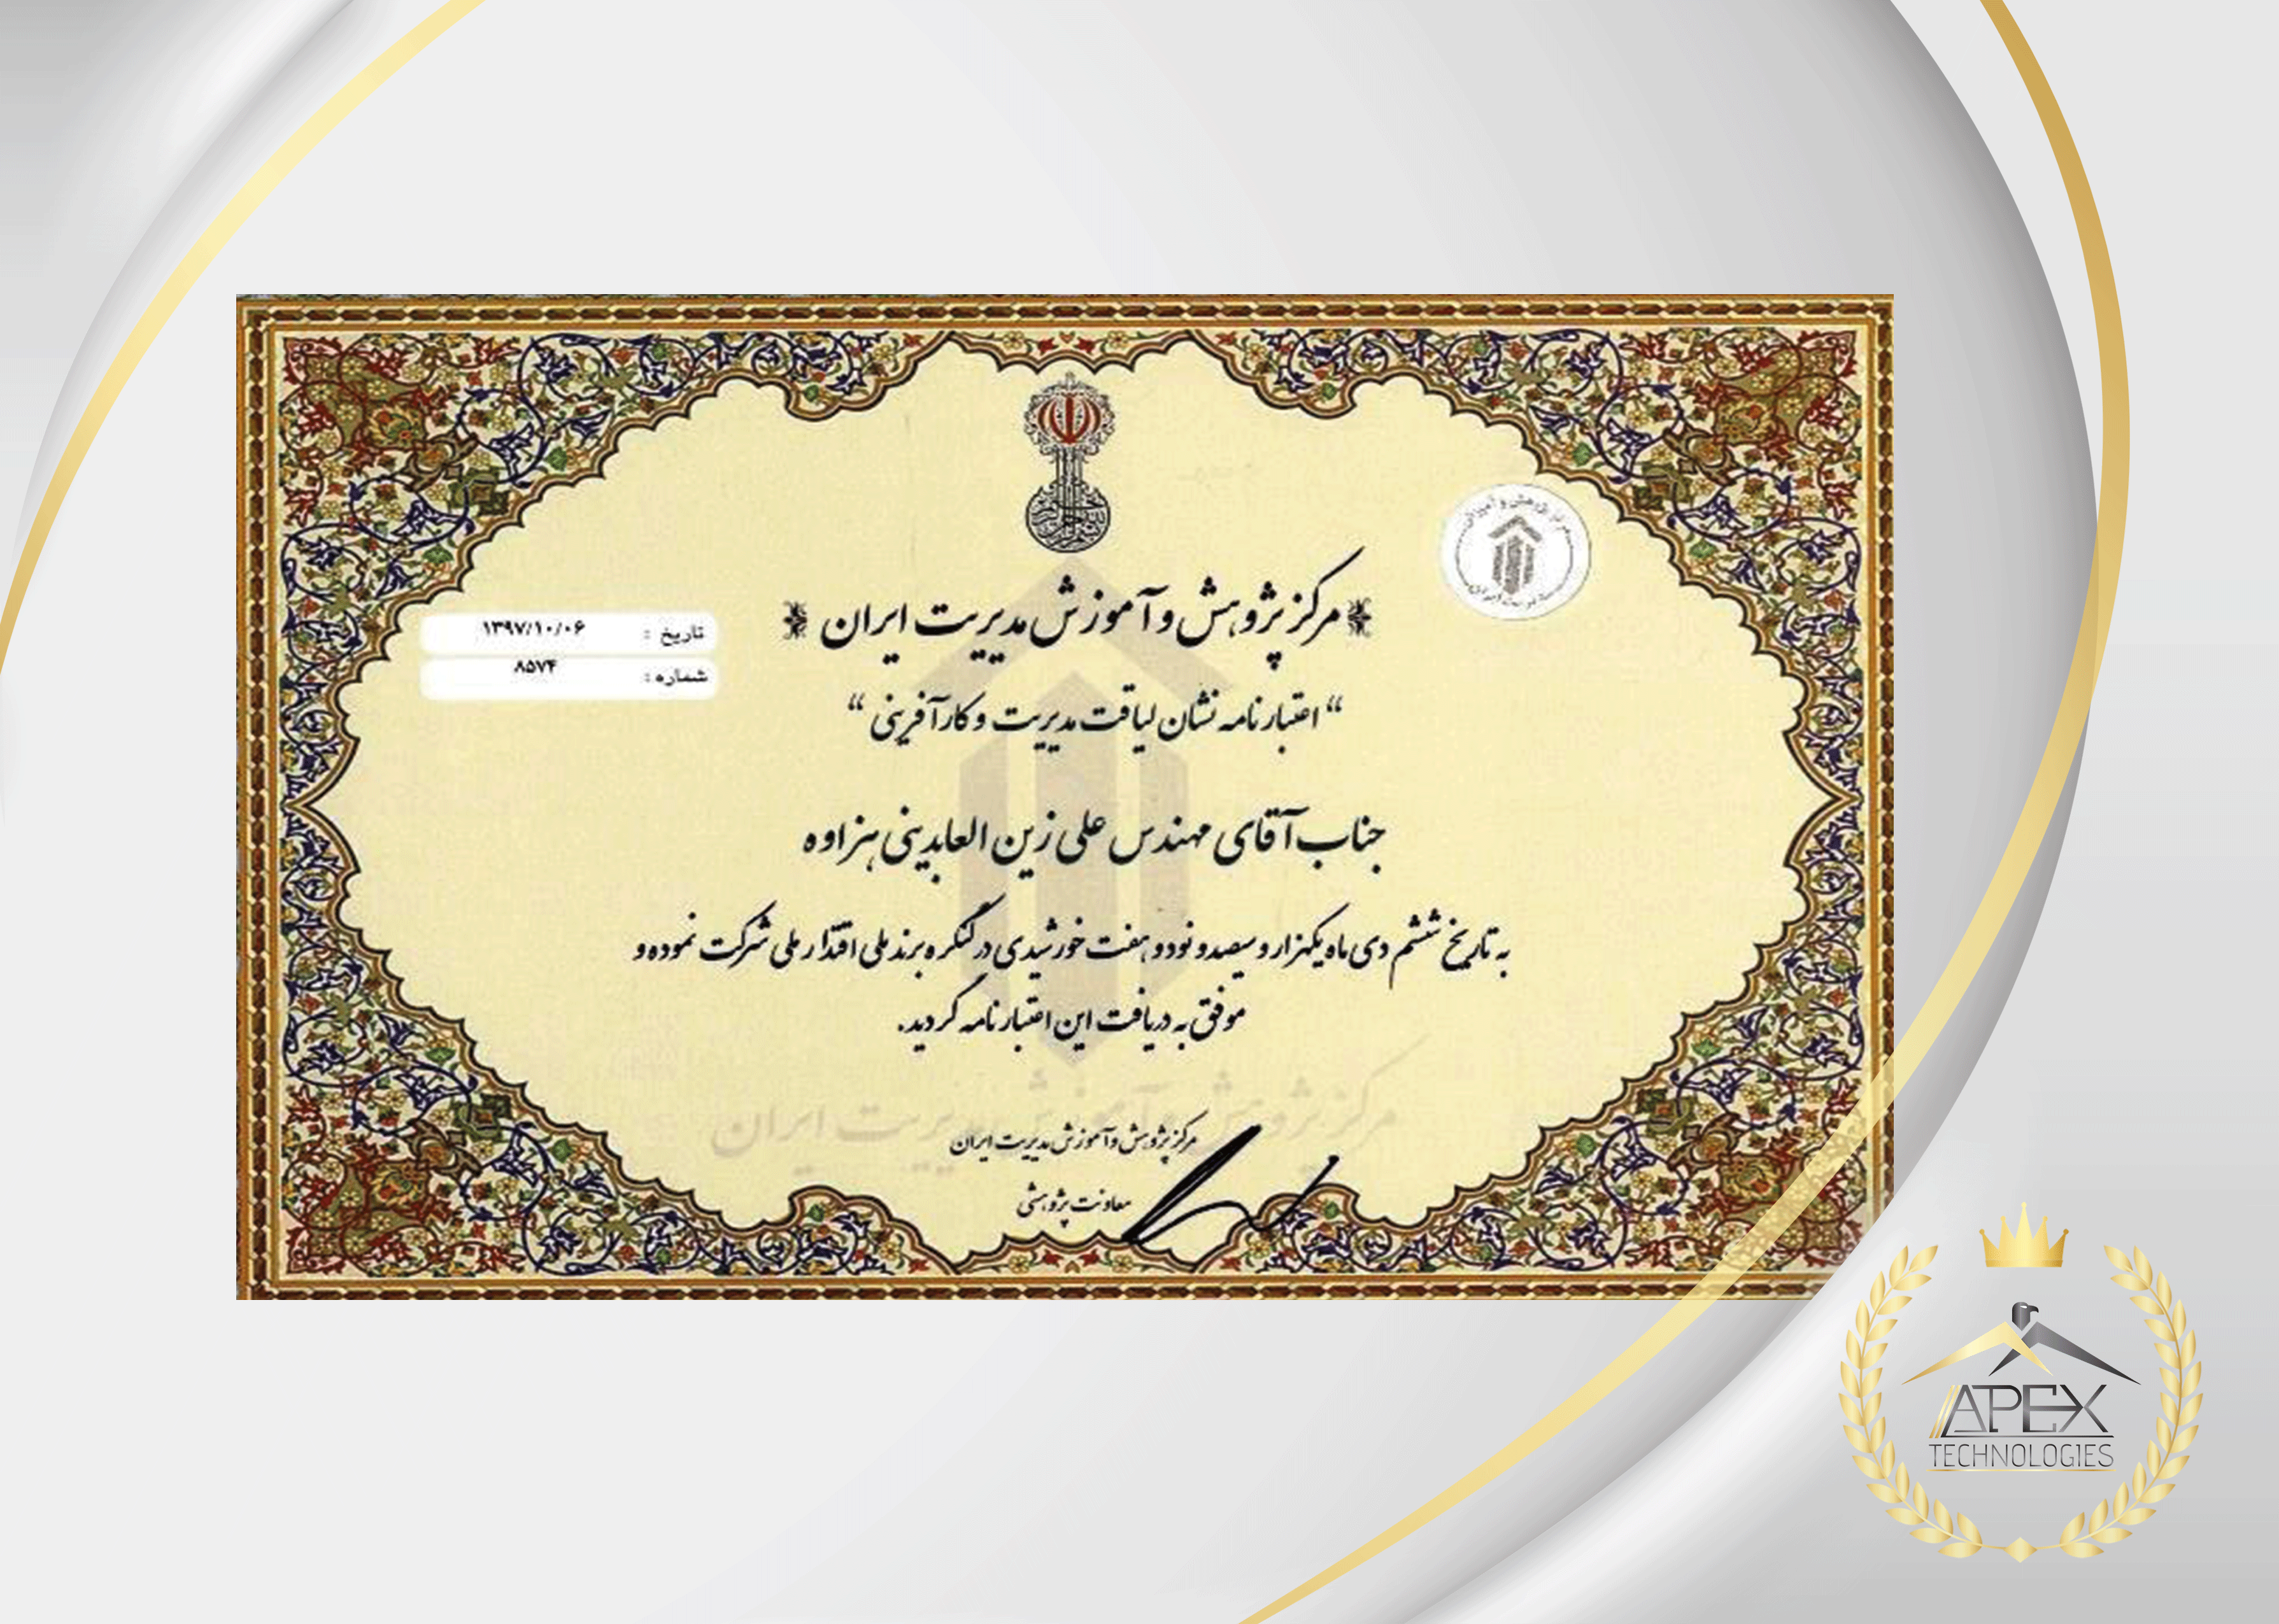 مرکز پژوهش و آموزش مدیریت ایران
تاریخ : ۱۳۹۷/۱۰/۰۶
شماره : ۸۵۷۴
“ اعتبارنامه نشان لیاقت مدیریت و کارآفرینی “
جناب آقای مهندس علی زین العابدینی هزاوه
به تاریخ ششم دی ماه یکهزار و سیصد و نود و هفت خورشیدی در کنگره برند ملی اقتدار ملی شرکت نموده و
موفق به دریافت این اعتبارنامه گردید.
مرکز پژوهش و آموزش مدیریت ایران
مرکز پژوهش و آموزش مدیریت ایران
معاونت پژوهشی
APEX
TECHNOLOGIES